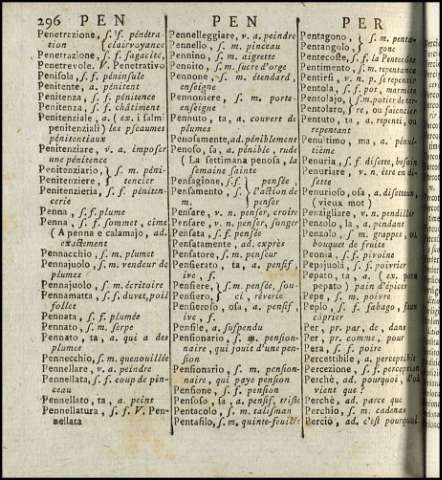 296 PEN PEN PER
Penetrezione, s. f. pénétra-
tion (clairvoyance
Penetrazione, s. f. sagacité,
Penetrevole. V. Penetrativo
Penisola, s. f. péninsule
Penitente, a. pénitent
Penitenza, s. f. pénitence
Penitenza, s. f. châtiment
Penitenziale, a. (ex. i salmi
penitenziali) les pseaumes
pénitentiaux
Penitenziare, v. a. imposer
une pénitence
Penitenziario, } s. m. péni-
Penitenziere, } tencier
Penitenzieria, s. f. péniten-
cerie
Penna, s. f. plume
Penna, s. f. sommet, cime
(A penna e calamajo, ad.
exactement
Pennacchio, s. m. plumet
Pennajuolo, s. m. vendeur de
plumes
Pennajuolo, s. m. écritoire
Pennamatta, s. f. duvet, poil
follet
Pennata, s. f. plumée
Pennato, s. m. serpe
Pennato, ta, a. qui a des
plumes
Pennecchio, s. m. quenouillée
Pennellare, v. a. peindre
Pennellata, s. f. coup de pin-
ceau
Pennellato, ta, a. peint
Pennellatura, s. f. V. Pen-
nellata
Pennelleggiare, v. a. peindre
Pennello, s. m. pinceau
Pennino, s. m. aigrette
Pennito, s. m. sucre d'orge
Pennone, s. m. étendard,
enseigne
Pennoniere, s. m. porte-
enseigne
Pennuto, ta, a. couvert de
plumes
Penosamente, ad. péniblement
Penoso, sa, a. pénible, rude
(La settimana penosa, la
semaine sainte
Pensagione, s. f. } pensée,
Pensamento, s. } l'action de
m. penser
Pensare, v. n. penser, croire
Pensare, v. n. penser, songer
Pensata, s. f. pensée
Pensatamente, ad. exprès
Pensatore, s. m. penseur
Pensierato, ta, a. pensif,
ive, s. f.
Pensiere, } s. m. pensée, sou-
Pensiero, } ci, rêverie
Pensieroso, osa, a. pensif,
ive, s. f.
Pensile, a. suspendu
Pensionario, s. m. pension-
naire, qui jouit d'une pen-
sion
Pensionario, s. m. pension-
naire, qui paye pension
Pensione, s. f. pension
Pensoso, sa, a. pensif, triste
Pentacolo, s. m. talisman
Pentafilo, s. m. quinte-feuille
Pentagono, } s. m. penta-
Pentangolo, } gone
Pentecoste, s. f. la Pentecôte
Pentimento, s. m. repentance
Pentirsi, v. n. p. se repentir
Pentola, s. f. pot, marmite
Pentolajo, s. m. potier de ter-
Pentolaro, (re, ou faïencier
Pentuto, ta, a. repenti, ou
repentant
Penultimo, ma, a. pénul-
tième
Penuria, s. f. disette, besoin
Penuriare, v. n. être en di-
sette
Penurioso, osa, a. disetteux,
(vieux mot)
Penzigliare, v. n. pendiller
Penzolo, la, a. pendant
Penzolo, s. m. grappes, ou
bouquet de fruits
Peonia, s. f. pivoine
Pepajuola, s. f. poivrier
Pepato, ta, a. (ex. pan
pepato) pain d'épice
Pepe, s. m. poivre
Peplo, s. f. fabago, faux
câprier
Per, pr. par, de, dans
Per, pr. comme, pour
Pera, s. f. poire
Percettibile, a. perceptible
Percezione, s. f. perception
Perchè, ad. pourquoi, d'où
vient que?
Perchè, ad. parce que
Perchio, s. m. cadenas
Perciò, ad. c'est pourquoi